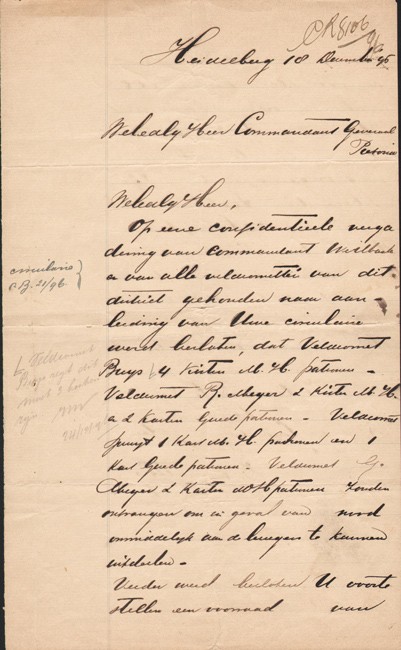 CR8106/96
Heidelberg 18 December 95
WelEdly Heer Commandant Generaal
Pretoria
WelEdly Heer,
Op eene confidentieele verga
dering van Commandant
en van alle veldcornetten van dit
district gehouden naar aan-
leiding van Uwe circulaire
werd besloten, dat Veldcornet
Buys 4 Kisten M. H. patronen -
Veldcornet R. Meyer 2 Kisten M. H.
en 2 Kisten Guede patronen - Veldcornet
Spruyt 1 Kist M. H. patronen en 1
Kist Guede patronen - Veldcornet G.
Meyer 2 Kisten M H patronen zouden
ontvangen om in geval van nood
onmiddelyk aan de burgers te kunnen
uitdeelen -
Verder werd besloten U voorte
stellen een voorraad van
circulaire
B. 21/96
Veldcornet
Buys zegt dit
moet 3 kisten
zyn